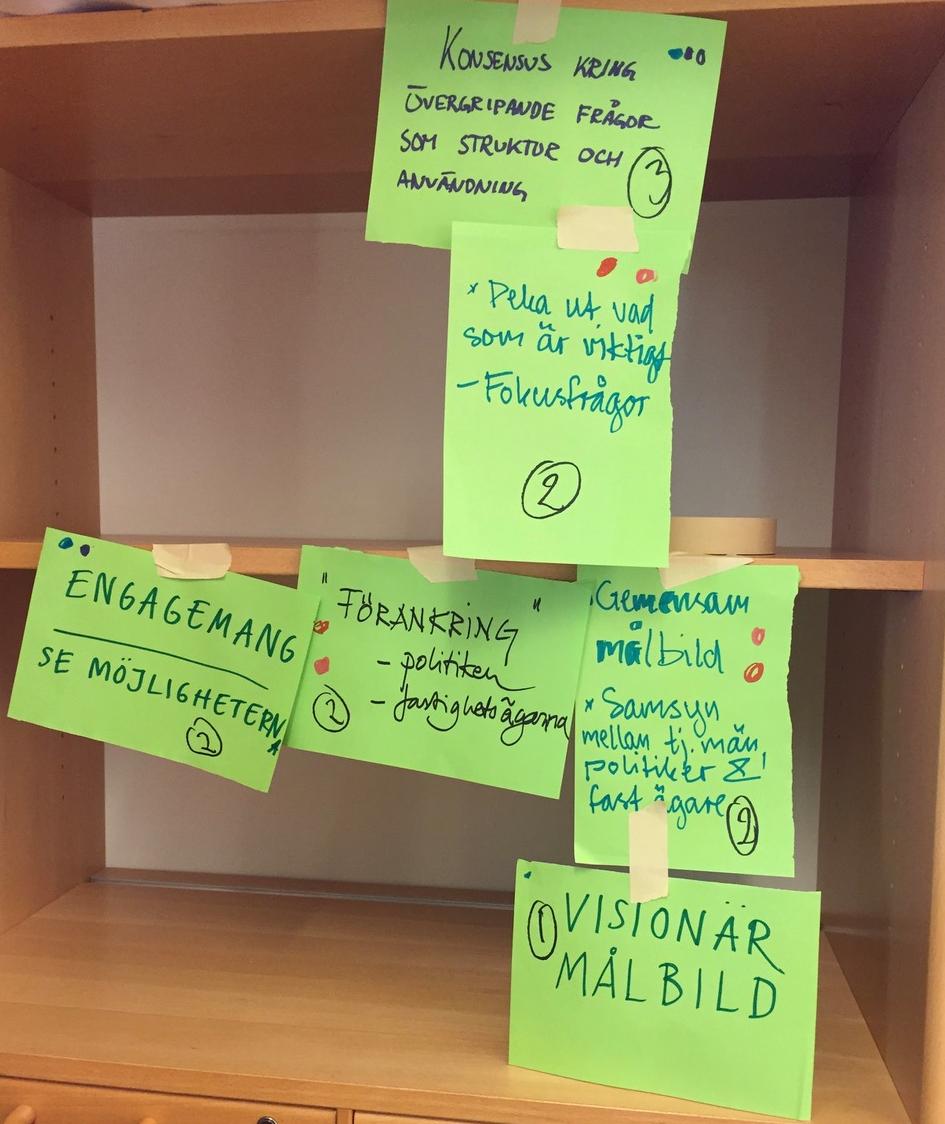 KONSENSUS KRING
ÖVERGRIPANDE FRÅGOR
SOM STRUKTUR OCH
ANVÄNDNING
3
* Peka ut vad
som är viktigt
- Fokusfrågor
2
ENGAGEMANG
SE MÖJLIGHETERNA
2
"FÖRANKRING"
- politiken
- fastighetsägarna
2
Gemensam
målbild
* Samsyn
mellan tj. män,
politiker &
fast ägare
2
1 VISIONÄR
MÅLBILD